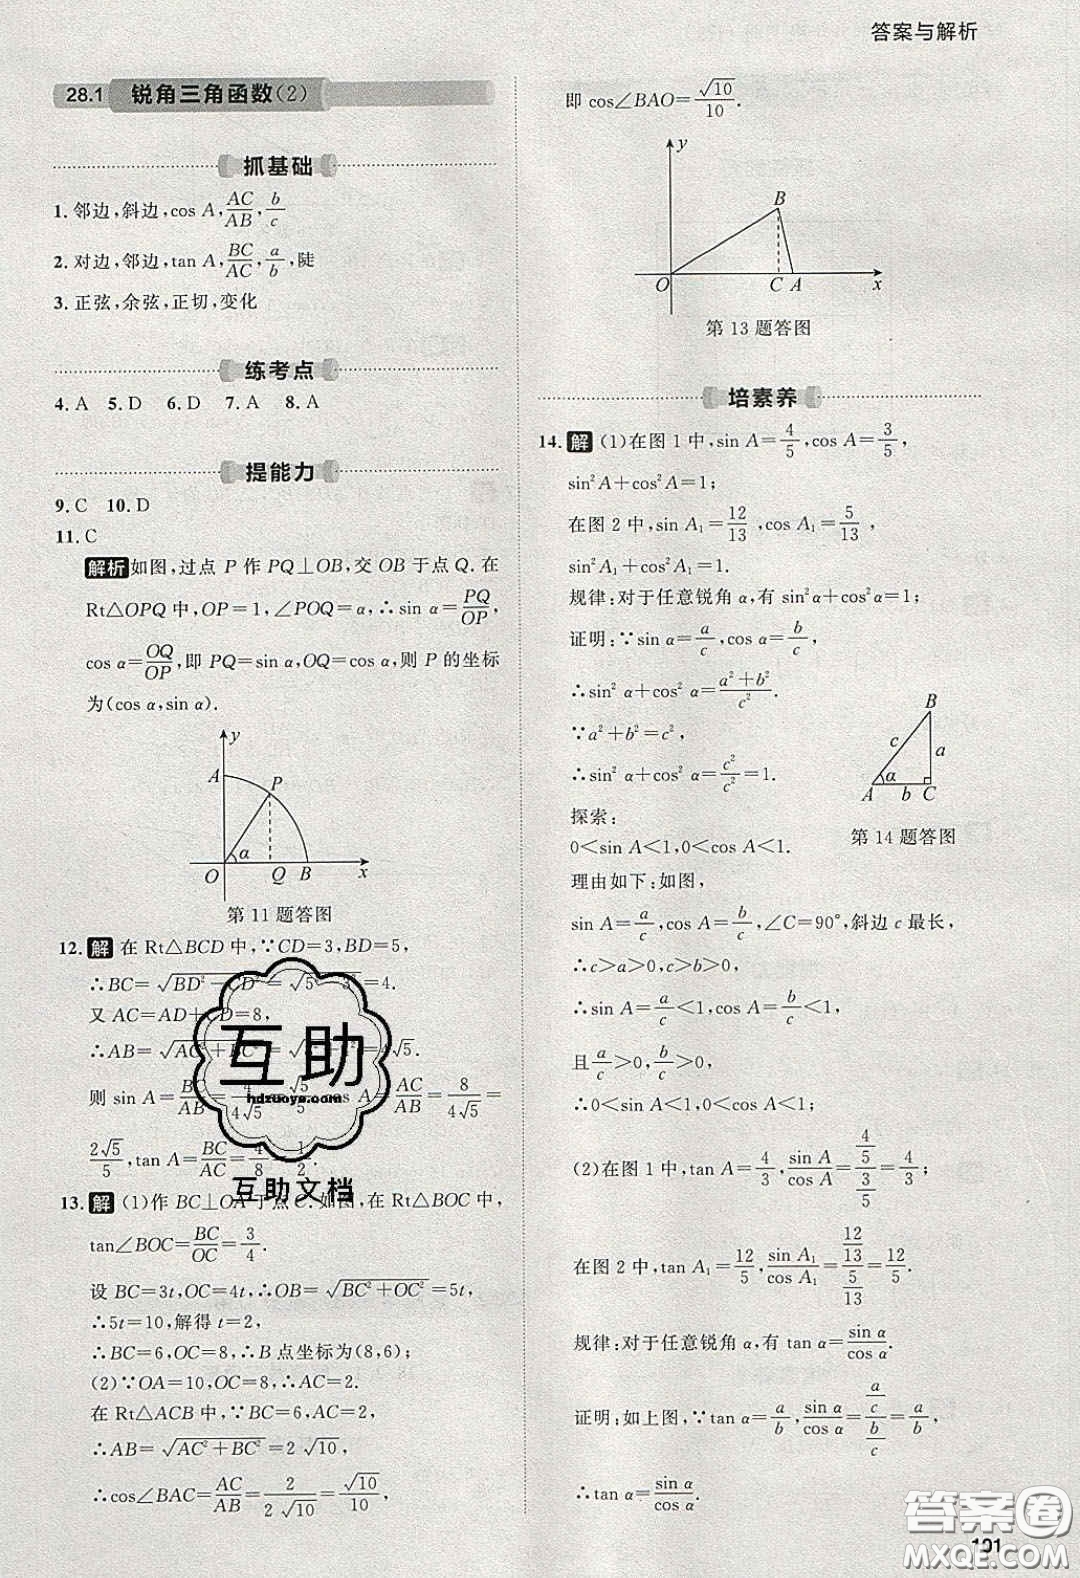 答案与解析
28.1 锐角三角函数(2)
抓基础
1. 邻边,斜边,cos A,AC/AB,b/c
2. 对边,邻边,tan A,BC/AC,a/b,陡
3. 正弦,余弦,正切,变化
练考点
4. A 5. D 6. D 7. A 8. A
提能力
9. C 10. D
11. C
解析 如图,过点 P 作 PQ⊥OB,交 OB 于点 Q. 在
Rt△OPQ 中,OP=1,∠POQ=α,∴sin α=PQ/OP,
cos α=OQ/OP,即 PQ=sin α,OQ=cos α,则 P 的坐标
为(cos α,sin α).
y
A
P
α
O Q B x
第 11 题答图
12. 解 在 Rt△BCD 中,∵CD=3,BD=5,
∴BC=√(BD²-CD²)=√(5²-3²)=4.
又 AC=AD+CD=8,
∴AB=√(AC²+BC²)=√(8²+4²)=4√5.
则 sin A=BC/AB=4/(4√5)=√5/5,cos A=AC/AB=8/(4√5)=
2√5/5,tan A=BC/AC=4/8=1/2.
互助
hdzuoye.com
互助文档
13. 解 (1)作 BC⊥OA 于点 C. 如图,在 Rt△BOC 中,
tan∠BOC=BC/OC=3/4.
设 BC=3t,OC=4t,∴OB=√(BC²+OC²)=5t,
∴5t=10,解得 t=2,
∴BC=6,OC=8,∴B 点坐标为(8,6);
(2)∵OA=10,OC=8,∴AC=2.
在 Rt△ACB 中,∵BC=6,AC=2,
∴AB=√(AC²+BC²)=2√10,
∴cos∠BAC=AC/AB=2/(2√10)=√10/10,
即 cos∠BAO=√10/10.
y
B
O C A x
第 13 题答图
培素养
14. 解 (1)在图 1 中,sin A=4/5,cos A=3/5,
sin²A+cos²A=1;
在图 2 中,sin A₁=12/13,cos A₁=5/13,
sin²A₁+cos²A₁=1.
规律:对于任意锐角 α,有 sin²α+cos²α=1;
证明:∵sin α=a/c,cos α=b/c,
∴sin² α+cos² α=(a²+b²)/c².
∵a²+b²=c²,
∴sin² α+cos² α=c²/c²=1.
B
c a
α
A b C
第 14 题答图
探索:
0<sin A<1,0<cos A<1.
理由如下:如图,
sin A=a/c,cos A=b/c,∠C=90°,斜边 c 最长,
∴c>a>0,c>b>0,
∴sin A=a/c<1,cos A=b/c<1,
且 a/c>0,b/c>0,
∴0<sin A<1,0<cos A<1;
(2)在图 1 中,tan A=4/3,sin A/cos A=(4/5)/(3/5)=4/3;
在图 2 中,tan A₁=12/5,sin A₁/cos A₁=(12/13)/(5/13)=12/5.
规律:对于任意锐角 α,有 tan α=sin α/cos α.
证明:如上图,∵tan α=a/b,sin α/cos α=(a/c)/(b/c)=a/b,
∴tan α=sin α/cos α.
答案圈
MXQE.COM
101